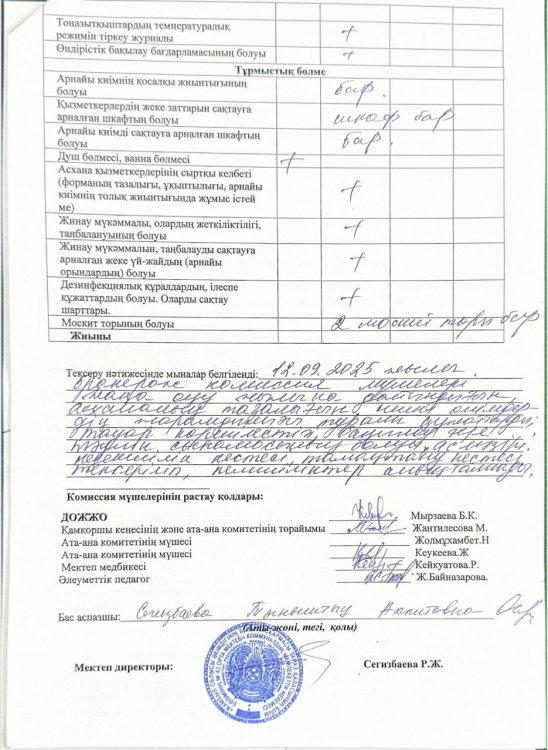 Тоңазытқыштардың температуралық
режимін тіркеу журналы +
Өндірістік бақылау бағдарламасының болуы +
Тұрмыстық бөлме
Арнайы киімнің қосалқы жиынтығының
болуы бар.
Қызметкерлердің жеке заттарын сақтауға
арналған шкафтың болуы шкаф бар
Арнайы киімді сақтауға арналған шкафтың
болуы бар.
Душ бөлмесі, ванна бөлмесі +
Асхана қызметкерлерінің сыртқы келбеті
(форманың тазалығы, ұқыптылығы, арнайы
киімнің толық жиынтығында жұмыс істей
ме) +
Жинау мүкәммалы, олардың жеткіліктілігі,
таңбалануының болуы +
Жинау мүкәммалын, таңбалауды сақтауға
арналған жеке үй-жайдың (арнайы
орындардың) болуы +
Дезинфекциялық құралдардың, ілеспе
құжаттардың болуы. Оларды сақтау
шарттары. +
Москит торының болуы 2 москит торы бар
Жиыны
Тексеру нәтижесінде мыналар белгіленді: 12.09.2025 жылғы
бракераж комиссия мүшелері
жаңа оқу жылына дайындығын,
асхананың тазалығын
тауар көршілестік
кестесі, тамақтану кестесі
тексеріліп, кемшіліктер анықталмады.
Комиссия мүшелерінің растау қолдары:
ДОЖЖО Мырзаева Б.К.
Қамқоршы кеңесінің және ата-ана комитетінің төрайымы Жантилесова М.
Ата-ана комитетінің мүшесі Жолмұхамбет.Н
Ата-ана комитетінің мүшесі Кеукеева.Ж
Мектеп медбикесі Кейкуатова.Р.
Әлеуметтік педагог Ж.Байназарова.
Бас аспазшы: Тыныштық
(Аты-жөні, тегі, қолы)
Мектеп директоры: Сегизбаева Р.Ж.